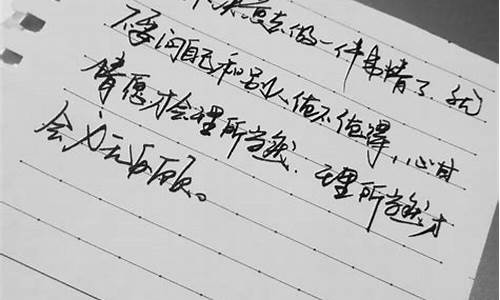 决意去做一件事情了就
不要问自己和别人值不值得,心甘
情愿才会理所当然.理所当然才
会义无反顾。